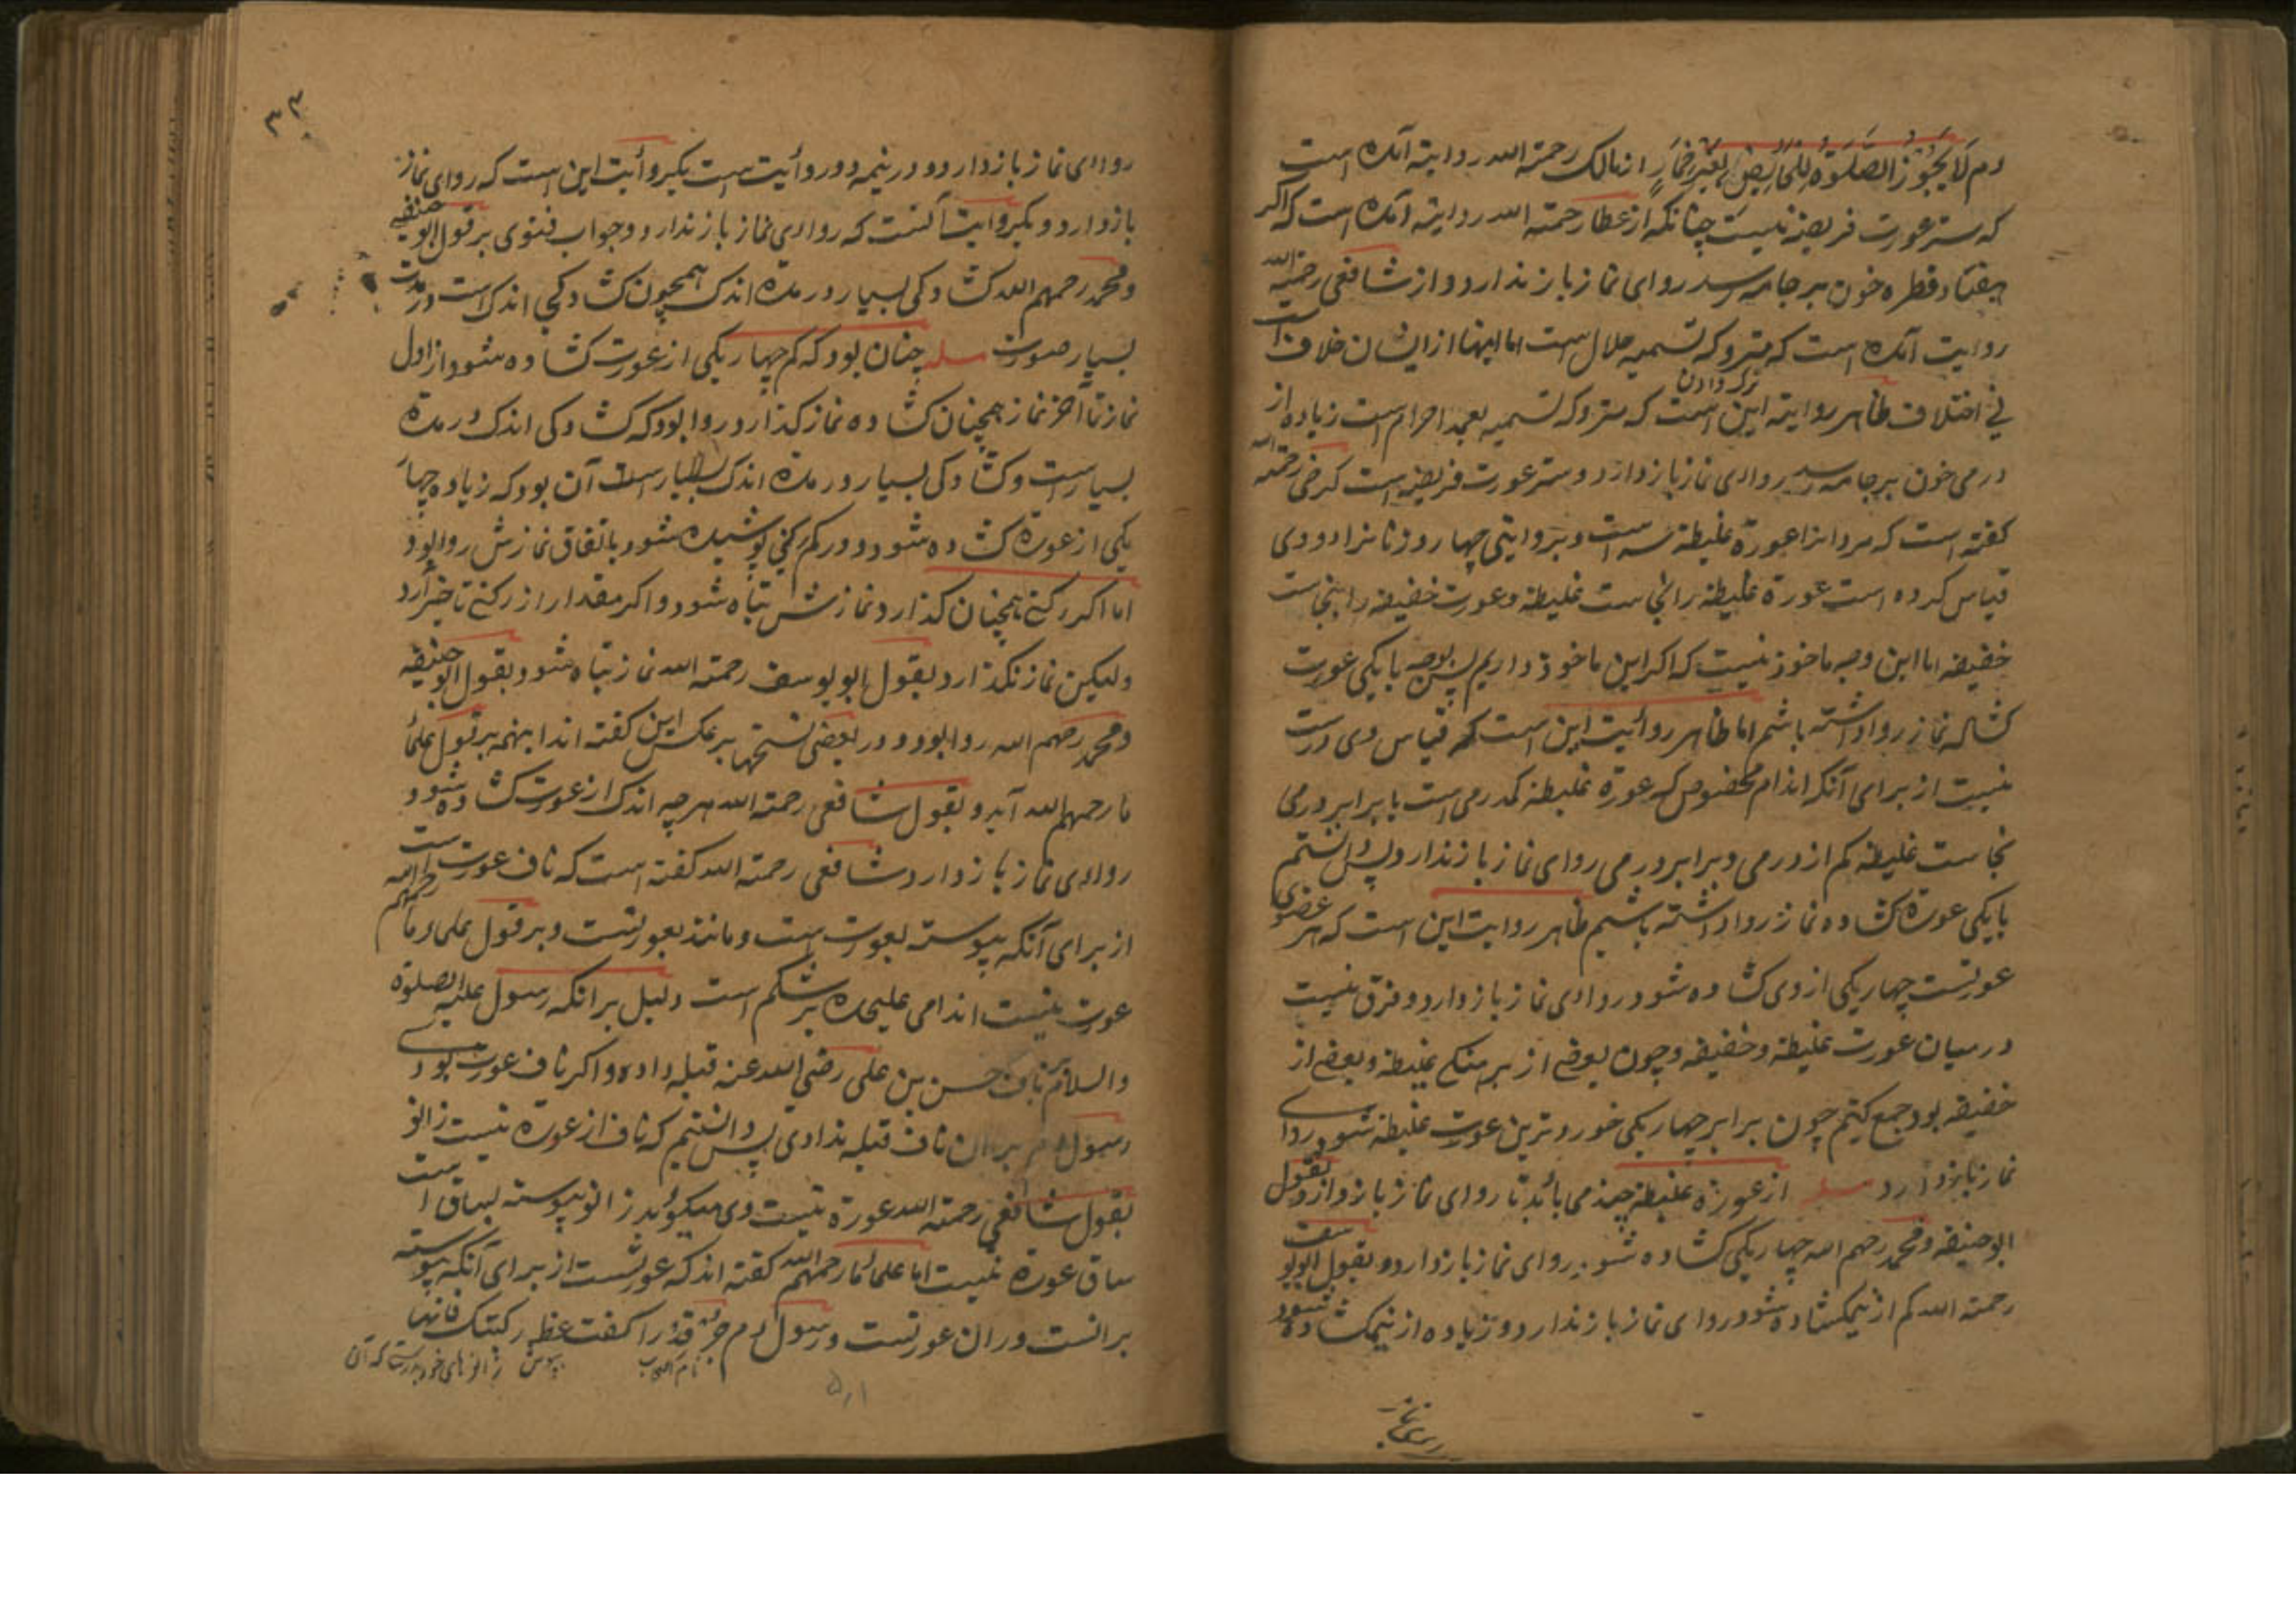 دم لَا یَجُوْزُ الصَّلوٰةُ لِلْحَائِضِ بِغَیْرِ خِمَارٍ از مالک رحمته الله روایته آمده است
که ستر عورت فریضه نیست چنانکه از عطا رحمته الله روایته آمده است که اگر
هفتاد قطره خون بر جامه رسد روای نماز باز ندارد و از شافعی رحمته الله
روایت آمده است که متروکه تسمیه حلال است اما اینها از ایشان خلاف است
نی اختلاف ظاهر روایته این است که متروکه تسمیه بعمد احرام است زیاده از
درمی خون بر جامه رسد روای نماز باز دارد و ستر عورت فریضه است کرخی رحمته الله
گفته است که مردانرا عورة غلیطه سه است و بروایتی چهار و زنانرا دو وی
قیاس کرده است عورة غلیطه را نجاست غلیطه و عورت خفیفه را بنجاست
خفیفه اما این وجه ماخوذ نیست که اگر این ماخوذ داریم پس بوجه با یکی عورت
کشاله نماز روا داشته باشم اما ظاهر روأیت این است که قیاس وی درست
نیست از برای آنکه اندام مخصوص که عورة غلیطه کم درمی است یا برابر درمی
نجاست غلیطه کم از درمی و برابر درمی روای نماز باز ندارد پس دانستم
با یکی عورة کشاده نماز روا داشته باشیم ظاهر روایت این است که هر عضوی
عورتست چهار یکی از وی کشاده شود روادی نماز باز دارد و فرق نیست
در میان عورت غلیطه و خفیفه و چون بعضے از بر منکم غلیطه و بعضے از
خفیفه بود جمع کنیم چون برابر چهار یکی خورد ترین عورت غلیطه شود روای
نماز باز دارد مسله از عورة غلیطه چند می باید تا روای نماز باز دارد بقول
ابو حنیفه و محمد رحهم الله چهار یکی کشاده شود روای نماز باز دارد و بقول ابو یوسف
رحمته الله کم از نیمه کشاده شود روای نماز باز ندارد و زیاده از نیمه کشاده شود
روای نماز
٣٣
روادی نماز باز دارد و در نیمه دو روأیت است بکروأیت این است که روای نماز
باز دارد و بکروایت آنست که روادی نماز باز ندارد و جواب فتوی بر قول ابو حنیفه
و محمد رحمهم الله کشادگی بسیار در مدة اندک همچون کشادگی اندک است در مدت
بسیار صورت مسله چنان بود که کم چهار یکی از عورت کشاده شود از اول
نماز تا آخر نماز همچنان کشاده نماز گذارد روا بود که کشادگی اندک در مدة
بسیار است و کشادگی بسیار در مدة اندک آن بود که زیاده چهار
یکی از عورة کشاده شود و در کم رکنی پوشیده شود باتفاق نمازش روا بود
اما اگر رکنے همچنان گذارد نمازش تباه شود و اگر مقدار از رکنے تاخیر آرد
ولیکن نماز نگذارد بقول ابو یوسف رحمته الله نماز تباه شود و بقول ابو حنیفه
و محمد رحهم الله روا بود و در بعضی نسختها بر عکس این گفته اند اینهمه بر قول علمأ
ما رحمهم الله آید و بقول شافعی رحمته الله هر چه اندک از عورت کشاده شود
روادی نماز باز دارد شافعی رحمته الله گفته است که ناف عورت است
از برای آنکه پیوسته بعورت است و مانند بعورتست و بر قول علماء ما رحمهم الله
عورت نیست اندامی علیحده بر شکم است دلیل بر انکه رسول علیه الصلوة
والسلام بر ناف حسن بن علی رضی الله عنه قبله داده و اگر ناف عورت بودے
رسول م بران ناف قبله ندادی پس دانستیم که ناف از عورة نیست زانو
بقول شافعی رحمته الله عورة نیست وی میگوئید زانو پیوسته بساق است
ساق عورة نیست اما علمأ ما رحمهم الله گفته اند که عورتست از برای آنکه پیوسته
برانست و ران عورتست و رسول م را گفت غط رکبتک فانها
نام اصحاب
بپوش زانو های خود بدرستیکه آن